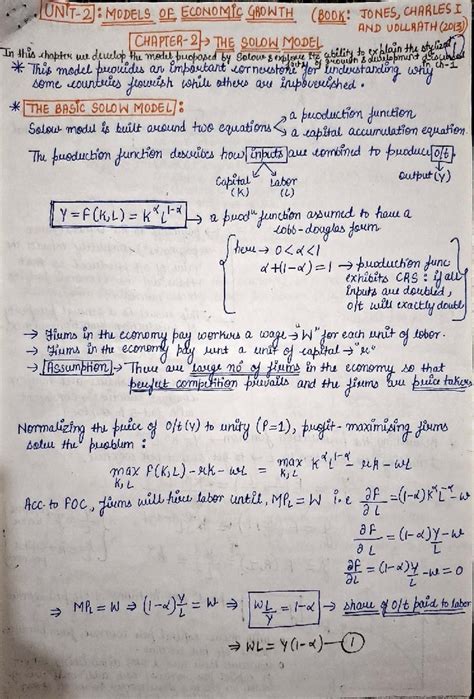 UNIT-2: MODELS OF ECONOMIC GROWTH (BOOK: JONES, CHARLES I
AND VOLLRATH (2013)
CHAPTER-2 → THE SOLOW MODEL
In this chapter we develop the model proposed by Solow & explore its ability to explain the stylized
facts of growth & development discussed
in Ch-1
* This model provides an important cornerstone for understanding why
some countries flourish while others are impoverished.
* THE BASIC SOLOW MODEL:
a production function
Solow model is built around two equations
a capital accumulation equation
The production function describes how inputs are combined to produce o/t.
Capital (K) Labor (L) Output (Y)
Y = F(K,L) = K^α L^1-α → a prodⁿ function assumed to have a
cobb-douglas form
here → 0<α<1
α+(1-α)=1 → production func
exhibits CRS: if all
inputs are doubled,
o/t will exactly double
→ Firms in the economy pay workers a wage → "W" for each unit of labor.
→ Firms in the economy pay rent a unit of capital → "r"
→ Assumption → There are large no of firms in the economy so that
perfect competition prevails and the firms are price takers
Normalizing the price of o/t (Y) to unity (P=1), profit-maximising firms
solve the problem:
max K,L F(K,L) - rk - wL = max K,L K^α L^1-α - rk - wL
Acc to FOC, firms will hire labor until, MPL = W i.e ∂F/∂L = (1-α)K^α L^-α - w
∂F/∂L = (1-α)Y/L - w
∂F/∂L = (1-α)Y/L - w = 0
⇒ MPL = W ⇒ (1-α)Y/L = W ⇒ WL/Y = 1-α → share of o/t paid to labor
⇒ WL = Y(1-α) — 1